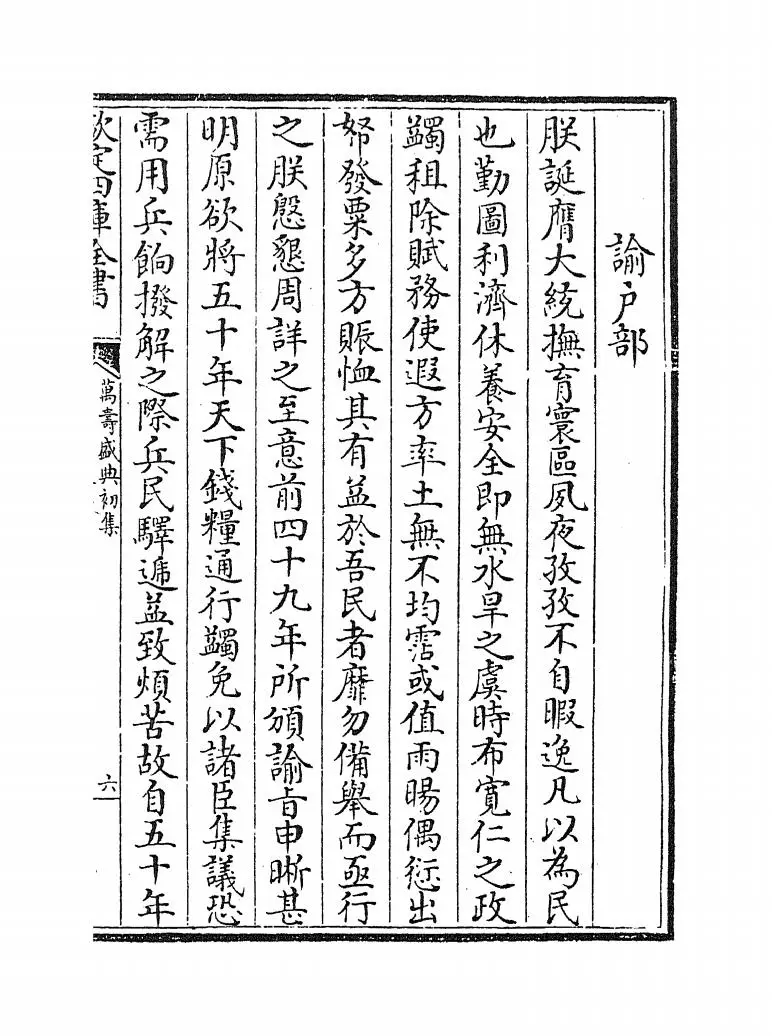 諭户部
朕誕膺大統撫育寰區夙夜孜孜不自暇逸凡以為民
也勤圖利濟休養安全即無水旱之虞時布寛仁之政
蠲租除賦務使遐方率土無不均霑或值雨暘偶愆出
帑發粟多方賑恤其有益於吾民者靡勿備舉而亟行
之朕慇懇周詳之至意前四十九年所頒諭㫖申晰甚
明原欲將五十年天下錢糧通行蠲免以諸臣集議恐
需用兵餉撥解之際兵民驛遞益致煩苦故自五十年
欽定四庫全書
萬壽盛典初集
六